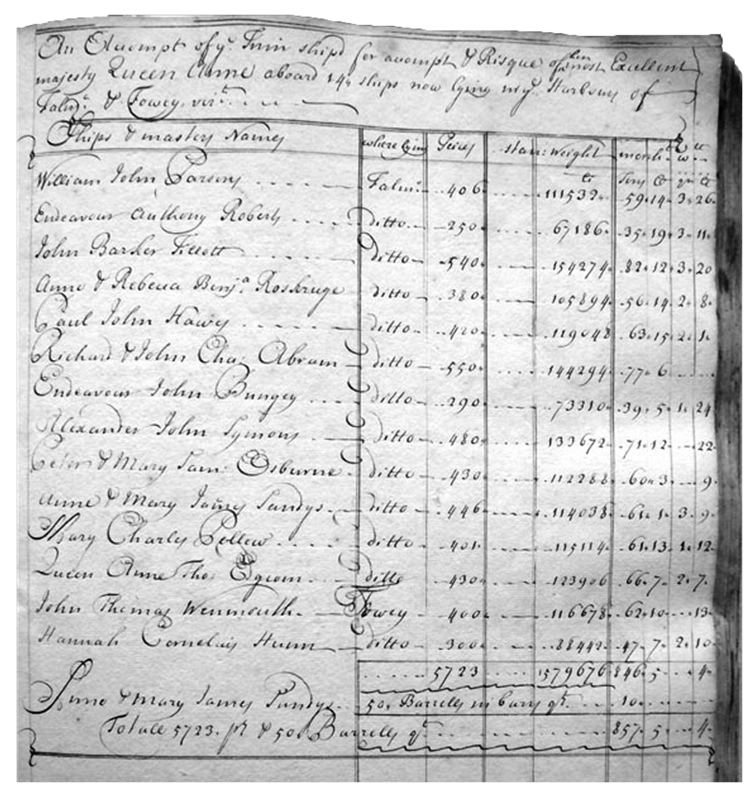 An Accompt of ye Tinn shipd for accompt & Risque of her most Excellent
majesty Queen Anne aboard 14 ships now lying in ye Harbours of
Falmo & Fowey vizt
Ships & masters Names where lying Peices Weight
William John Parsons Falmo 406 111532 59 14 3 26
Endeavour Anthony Roberts ditto 250 67186 35 19 3 11
John Barker Fittott ditto 540 154274 82 12 3 20
Anne & Rebecca Benja Roskruge ditto 380 105894 56 14 2 8
Paul John Hawey ditto 420 119048 63 15 2 1
Richard & John Cha: Abram ditto 550 144294 77 6
Endeavour John Bungey ditto 290 73310 39 5 1 24
Alexander John Symons ditto 480 133672 71 12 22
Peter & Mary Sam: Osburne ditto 430 112288 60 3 9
Anne & Mary James Sandys ditto 446 114038 61 1 3 9
Mary Charles Pellew ditto 401 115114 61 13 1 12
Queen Anne Tho: ditto 430 123906 66 7 2 7
John Thomas Wenmouth Fowey 400 116678 62 10 13
Hannah Cornelius Hunn ditto 300 88442 47 7 2 10
5723 1579676 846 5 4
Anne & Mary James Sandys 50 Barrells in barrs qt 10
Totall 5723 ps & 50 Barrells qt 857 5 4